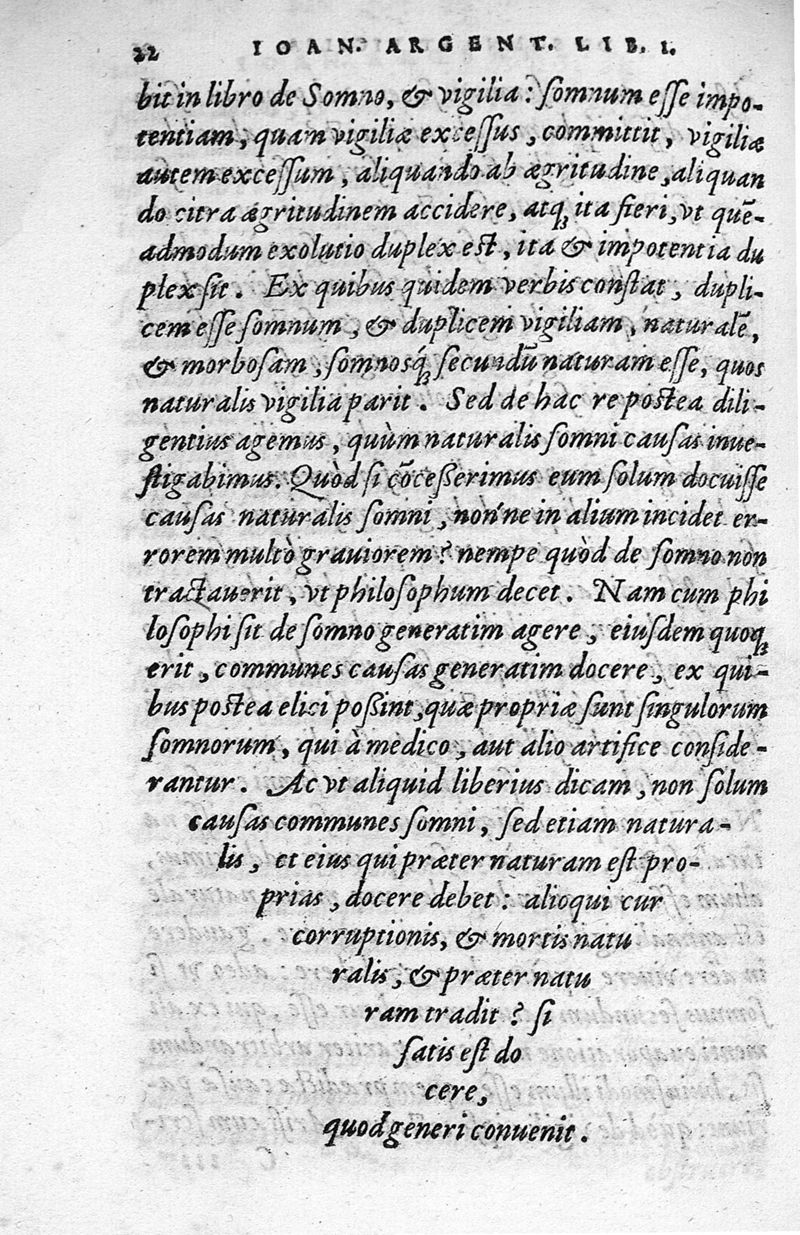 22 IOAN. ARGENT. LIB. I.
bit in libro de Somno, & vigilia: ſomnum eſſe impo-
tentiam, quam vigiliæ exceſſus, committit, vigiliæ
autem exceſſum, aliquando ab ægritudine, aliquan
do citra ægritudinem accidere, atq; ita fieri, vt quē-
admodum exolutio duplex est, ita & impotentia du
plex ſit. Ex quibus quidem verbis conſtat, dupli-
cem eſſe ſomnum, & duplicem vigiliam, naturalē,
& morboſam, ſomnosq́; ſecundū naturam eſſe, quos
naturalis vigilia parit. Sed de hac re postea dili-
gentius agemus, quùm naturalis ſomni cauſas inue-
ſtigabimus. Quòd ſi cōceßerimus eum ſolum docuiſſe
cauſas naturalis ſomni, non'ne in alium incidet er-
rorem multò grauiorem? nempe quòd de ſomno non
tractauerit, vt philoſophum decet. Nam cum phi
loſophi ſit de ſomno generatim agere, eiuſdem quoq;
erit, communes cauſas generatim docere, ex qui-
bus postea elici poßint, quæ propriæ ſunt ſingulorum
ſomnorum, qui à medico, aut alio artifice conſide-
rantur. Ac vt aliquid liberius dicam, non ſolum
cauſas communes ſomni, ſed etiam natura-
lis, et eius qui præter naturam eſt pro-
prias, docere debet: alioqui cur
corruptionis, & mortis natu
ralis, & præter natu
ram tradit? ſi
ſatis eſt do
cere,
quod generi conuenit.